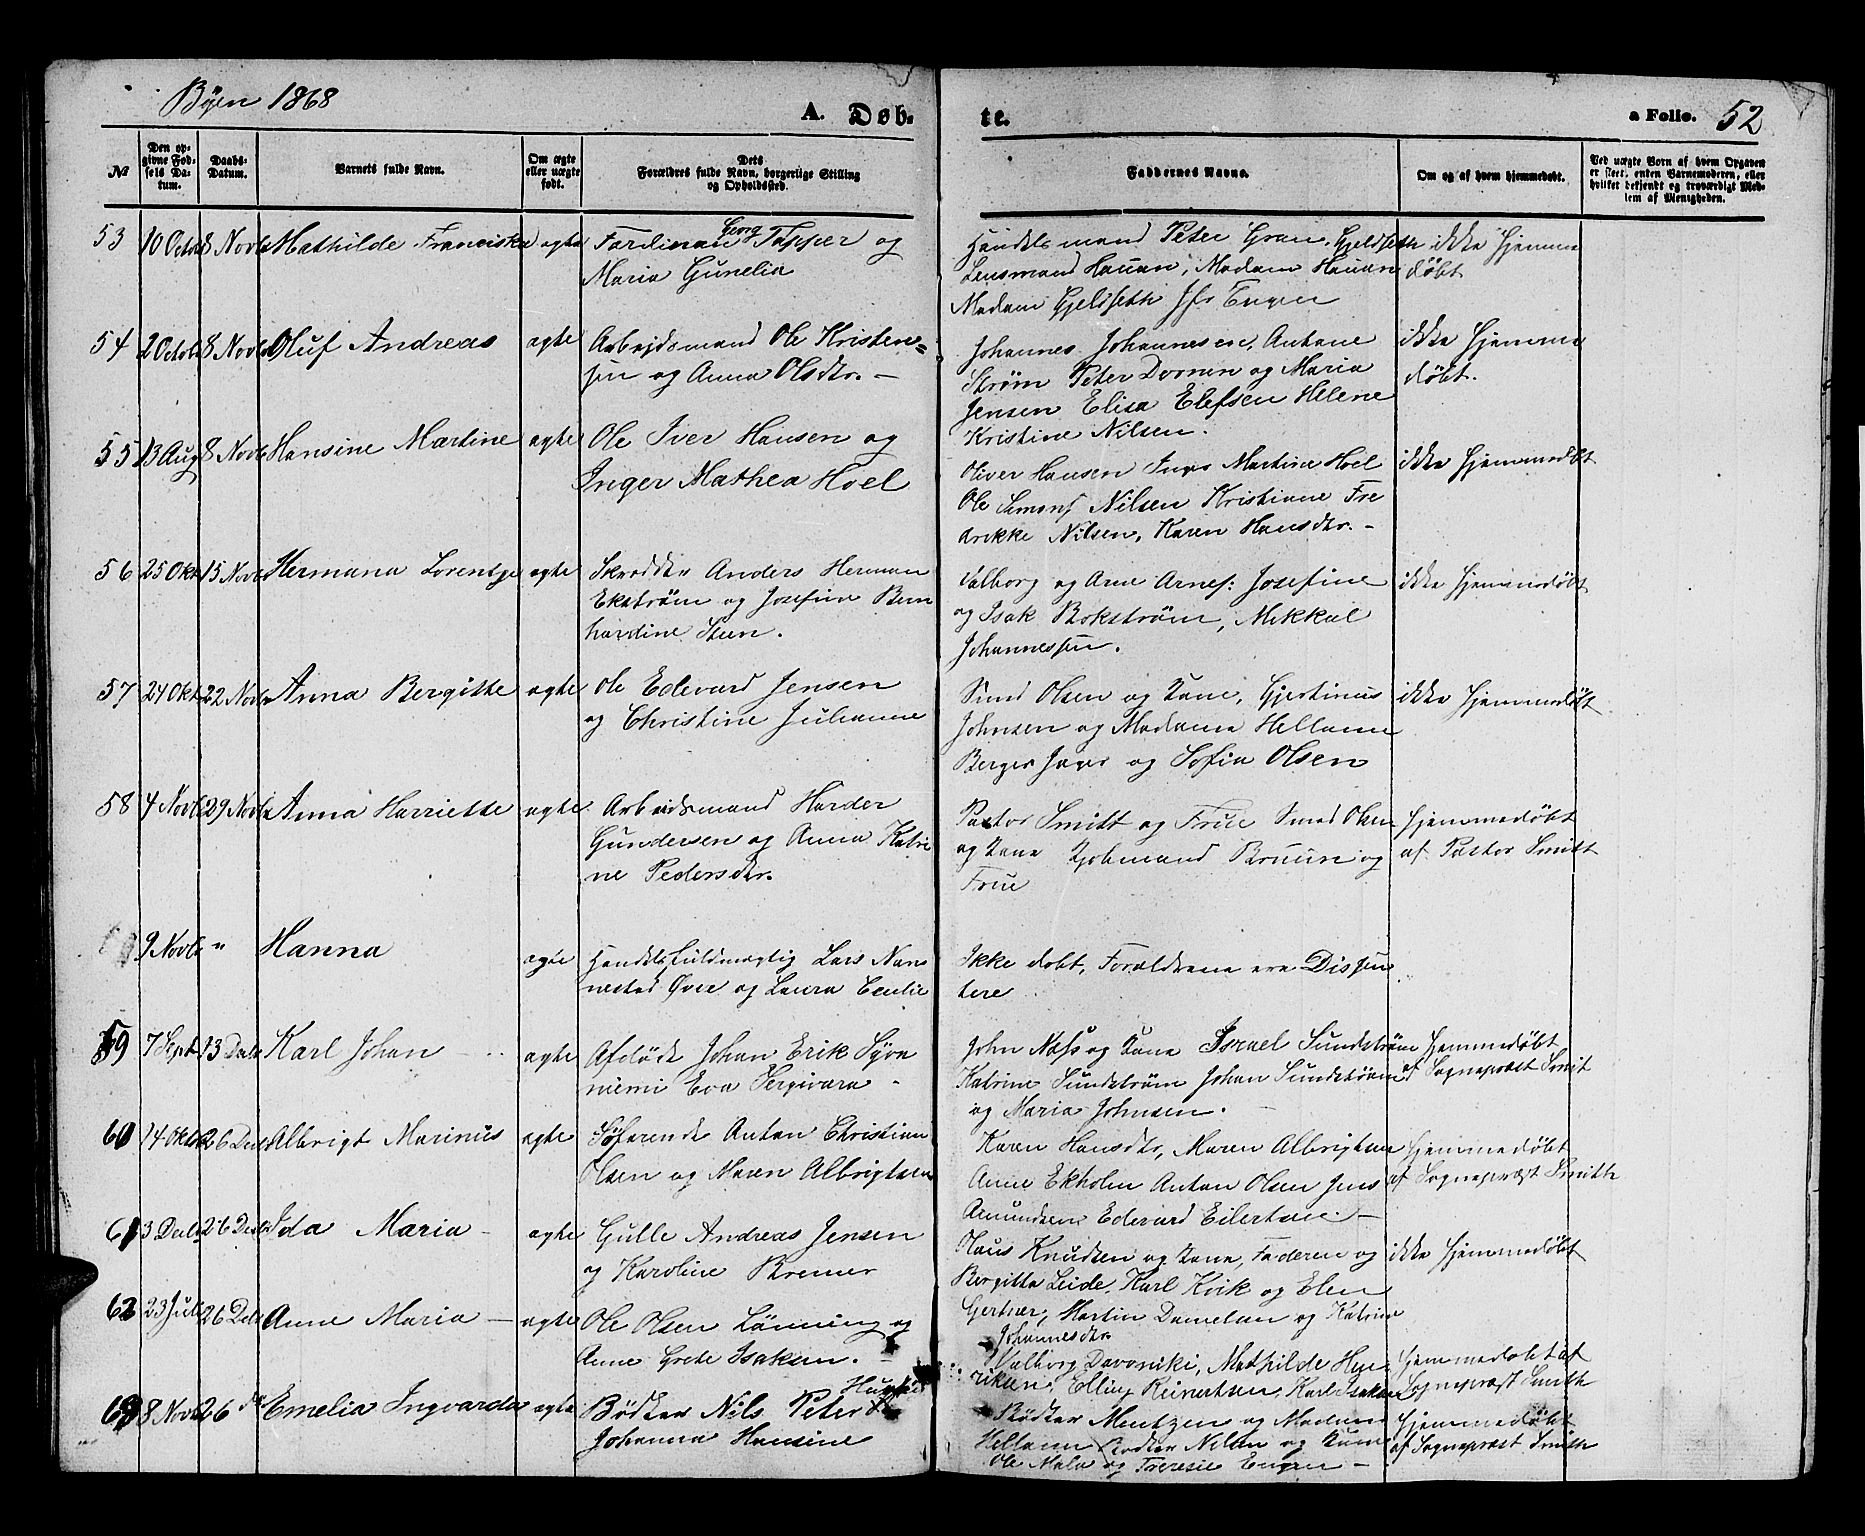 Byen 1868
A. Døb-
te.
a Folio. 52
No
Den op-
givne Fød-
sels Da-
tum.
Daabs-
Datum.
Barnets fulde Navn.
Om ægte
eller uægte
født.
Dets
Forældres fulde Navn, borgerlige Stilling
og Opholdssted.
Faddernes Navne.
Om og af hvem hjemmedøbt.
Ved uægte Børn af hvem Opgaven
er skeet, enten Barnemoderen, eller
hvilket bekjendt og troværdigt Med-
lem af Menigheden.
53 10 Octob 8 Novb Mathilde Franciska ægte Ferdinan Georg Tapper og
Maria Gunelia
Handelsmand Peter Gran, Gjeldseth
Lensmand Hauan, Madam Hauan
Madam Gjeldseth Jfr Engen
ikke hjemme
døbt
54 2 Octob 8 Novb Oluf Andreas ægte Arbeidsmand Ole Kristen=
sen og Anna Olsdtr. –
Johannes Johannesen, Antone
Strøm Peter Dornen og Maria
Jensen Elisa Elefsen Helene
Kristine Nilsen.
ikke hjemme
døbt.
55 13 Aug 8 Novb Hansine Martine ægte Ole Iver Hansen og
Inger Mathea Hoel
Oliver Hansen Inger Martine Hoel
Ole Simons Nilsen Kristiane Fre
drikke Nilsen, Karen Hansdtr. –
ikke hjemmedøbt
56 25 Okt 15 Novb Hermana Lorentze ægte Skredder Anders Herman
Ekstrøm og Josefine Bern
hardine Steen.
Valborg og Arne Arnes: Josefine
og Isak Bokstrøm, Mikkal
Johannessen.
ikke hjemmedøbt
57 24 Okt 22 Novb Anna Bergitte ægte Ole Edevard Jensen
og Christine Julianne
Smed Olsen og Kone, Gjertinus
Johnsen og Madame Hellam
Berger Inger og Sofia Olsen
ikke hjemmedøbt
58 4 Novb 29 Novb Anna Harriette ægte Arbeidsmand Harder
Gundersen og Anna Katri
ne Pedersdtr.
Pastor Smitt og Frue Smed Olsen
og Kone Kjøbmand Bruun og
Frue
hjemmedøbt
af Pastor Smitt
9 Novb " Hanna ægte Handelsfuldmægtig Lars Nan
nestad Øvre og Laura Cecilie
Ikke døbt, Forældrene ere Dissen
tere
59 7 Sept 13 Decb Karl Johan ægte Afdøde Johan Erik Syvä
niemi Eva Sergivara –
John Næss og Kone Israel Sundstrøm
Katrine Sundstrøm Johan Sundstrøm
og Maria Johnsen. –
hjemmedøbt
af Sognepræst Smit
60 14 Okt 26 Decb Albrigt Marinus ægte Søfarende Anton Christian
Olsen og Maren Albrigtsen
Karen Hansdtr, Maren Albrigtsen
Anne Ekholm Anton Olsen Jens
Amundsen Edevard Eilertsen. –
hjemmedøbt
af Sognepræst Smith
61 3 Decb 26 Decb Ida Maria – ægte Gulle Andreas Jensen
og Karoline Bremer
Claus Knudsen og Kone, Faderen og
Bergitta Leide, Karl Kvik og Elen
Gertner, Martin Danielsen og Katrine
Johannesdtr
ikke hjemmedøbt
62 23 Juli 26 Decb Anne Maria – ægte Ole Olsen Lønning og
Anne Grete Isaksen. –
Valborg Davoniki, Mathilde Hen
riksen, Elling Reinertsen Karl Isaksen
hjemmedøbt af
Sognepræst Smith
63 8 Novb 26 do Emelia Ingvarda ægte Bødker Nils Peter
Johanna Hansine
Bødker Mentzen og Madam
Hellam Bødker Nilsen og Kone
Ole Mala og Treresie Engen –
hjemmedøbt
af Sognepræst Smith